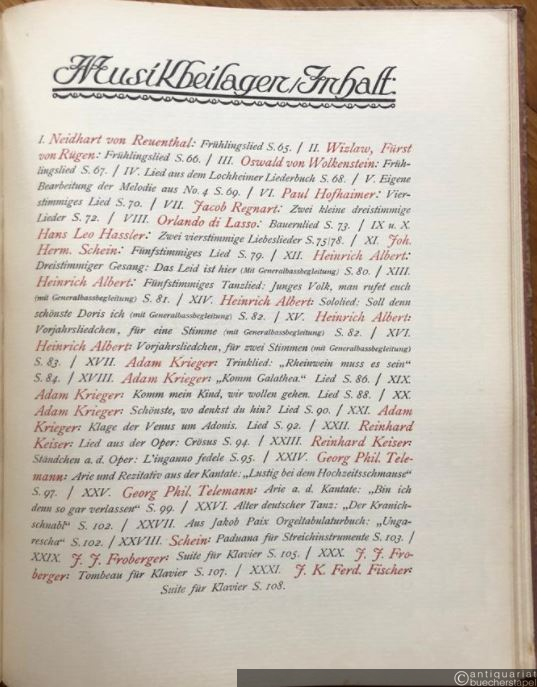 Musikbeilagen/Inhalt:
I. Neidhart von Reuenthal: Frühlingslied S. 65. / II. Wizlaw, Fürst
von Rügen: Frühlingslied S. 66. / III. Oswald von Wolkenstein: Früh-
lingslied S. 67. / IV. Lied aus dem Lochheimer Liederbuch S. 68. / V. Eigene
Bearbeitung der Melodie aus No. 4 S. 69. / VI. Paul Hofhaimer: Vier-
stimmiges Lied S. 70. / VII. Jacob Regnart: Zwei kleine dreistimmige
Lieder S. 72. / VIII. Orlando di Lasso: Bauernlied S. 73. / IX u. X.
Hans Leo Hassler: Zwei vierstimmige Liebeslieder S. 75/78. / XI. Joh.
Herm. Schein: Fünfstimmiges Lied S. 79. / XII. Heinrich Albert:
Dreistimmiger Gesang: Das Leid ist hier (Mit Generalbassbegleitung) S. 80. / XIII.
Heinrich Albert: Fünfstimmiges Tanzlied: Junges Volk, man rufet euch
(mit Generalbassbegleitung) S. 81. / XIV. Heinrich Albert: Sololied: Soll denn
schönste Doris ich (mit Generalbassbegleitung) S. 82. / XV. Heinrich Albert:
Vorjahrsliedchen, für eine Stimme (mit Generalbassbegleitung) S. 82. / XVI.
Heinrich Albert: Vorjahrsliedchen, für zwei Stimmen (mit Generalbassbegleitung)
S. 83. / XVII. Adam Krieger: Trinklied: „Rheinwein muss es sein“
S. 84. / XVIII. Adam Krieger: „Komm Galathea.“ Lied S. 86. / XIX.
Adam Krieger: Komm mein Kind, wir wollen gehen. Lied S. 88. / XX.
Adam Krieger: Schönste, wo denkst du hin? Lied S. 90. / XXI. Adam
Krieger: Klage der Venus um Adonis. Lied S. 92. / XXII. Reinhard
Keiser: Lied aus der Oper: Crösus S. 94. / XXIII. Reinhard Keiser:
Ständchen a. d. Oper: L'inganno fedele S. 95. / XXIV. Georg Phil. Tele-
mann: Arie und Rezitativ aus der Kantate: „Lustig bei dem Hochzeitsschmause“
S. 97. / XXV. Georg Phil. Telemann: Arie a. d. Kantate: „Bin ich
denn so gar verlassen“ S. 99. / XXVI. Alter deutscher Tanz: „Der Kranich-
schnabl“ S. 102. / XXVII. Aus Jakob Paix Orgeltabulaturbuch: „Unga-
rescha“ S. 102. / XXVIII. Schein: Paduana für Streichinstrumente S. 103. /
XXIX. J. J. Froberger: Suite für Klavier S. 105. / XXX. J. J. Fro-
berger: Tombeau für Klavier S. 107. / XXXI. J. K. Ferd. Fischer:
Suite für Klavier S. 108.
antiquariat
buecherstapel